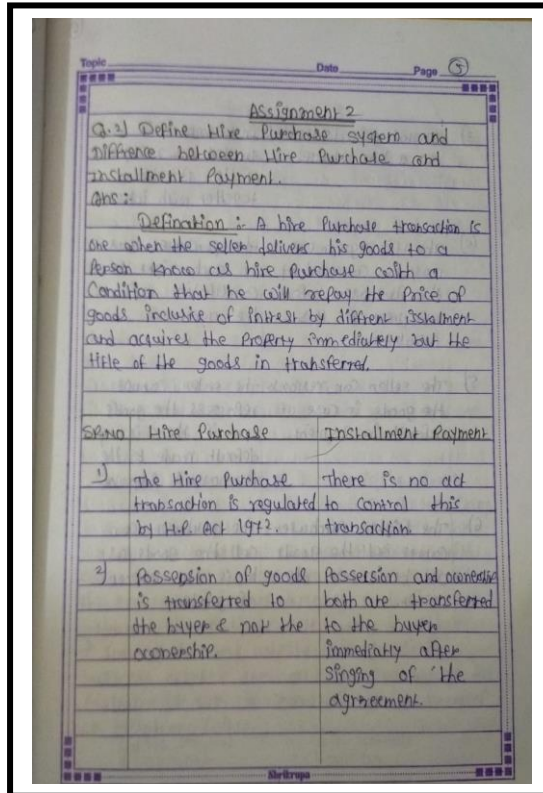 Topic Date Page 5
Assignment 2
Q.2) Define Hire Purchase system and
Diffrence between Hire Purchase and
Installment Payment.
Ans :
Defination :- A hire Purchase transaction is
one when the seller delivers his goods to a
Person know as hire Purchase with a
Condition that he will repay the Price of
goods inclusive of Intrest by diffrent istalment
and acquires the Property immediately but the
title of the goods in transferred.
SR.NO Hire Purchase Installment Payment
1) The Hire Purchase There is no act
transaction is regulated to control this
by H.P. Act 1972. transaction.
2) Possession of goods Possession and ownership
is transferred to both are transferred
the buyer & not the to the buyer
ownership. immediatly after
singing of the
agreement.
Shrikrupa